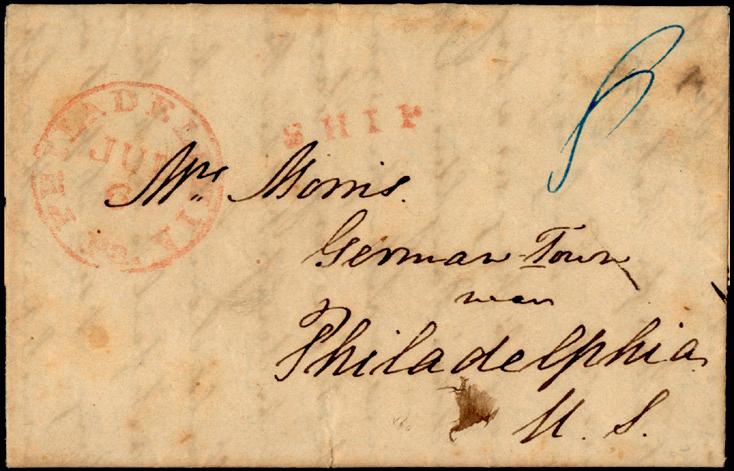 PHILADELPHIA Pa
JUN
6
SHIP
8
Mrs Morris.
German Town
near
Philadelphia
U. S.